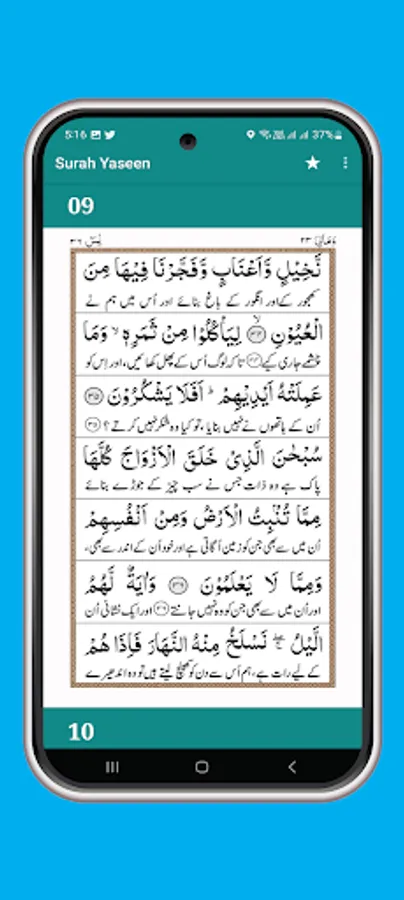 5:16 37%
Surah Yaseen
09
يٰسٓ ٣٦ وَمَالِيَ ٢٣
نَّخِيْلٍ وَّاَعْنَابٍ وَّفَجَّرْنَا فِيْهَا مِنَ
کھجور کے اور انگور کے باغ بنائے اور اُس میں ہم نے
الْعُيُوْنِ ﴿٣٤﴾ لِيَاْكُلُوْا مِنْ ثَمَرِهٖ ۙ وَمَا
چشمے جاری کیے ﴿٣٤﴾ تاکہ لوگ اُس کے پھل کھائیں، اور اِس کو
عَمِلَتْهُ اَيْدِيْهِمْ ؕ اَفَلَا يَشْكُرُوْنَ ﴿٣٥﴾
اُن کے ہاتھوں نے نہیں بنایا، تو کیا وہ شکر نہیں کرتے؟ ﴿٣٥﴾
سُبْحٰنَ الَّذِيْ خَلَقَ الْاَزْوَاجَ كُلَّهَا
پاک ہے وہ ذات جس نے سب چیز کے جوڑے بنائے
مِمَّا تُنْۢبِتُ الْاَرْضُ وَمِنْ اَنْفُسِهِمْ
اُن میں سے بھی جن کو زمین اُگاتی ہے اور خود اُن کے اندر سے بھی،
وَمِمَّا لَا يَعْلَمُوْنَ ﴿٣٦﴾ وَاٰيَةٌ لَّهُمُ
اور اُن میں سے بھی جن کو وہ نہیں جانتے ﴿٣٦﴾ اور ایک نشانی اُن
الَّيْلُ ۚۖ نَسْلَخُ مِنْهُ النَّهَارَ فَاِذَا هُمْ
کے لیے رات ہے، ہم اُس سے دن کو کھینچ لیتے ہیں تو وہ اندھیرے
10